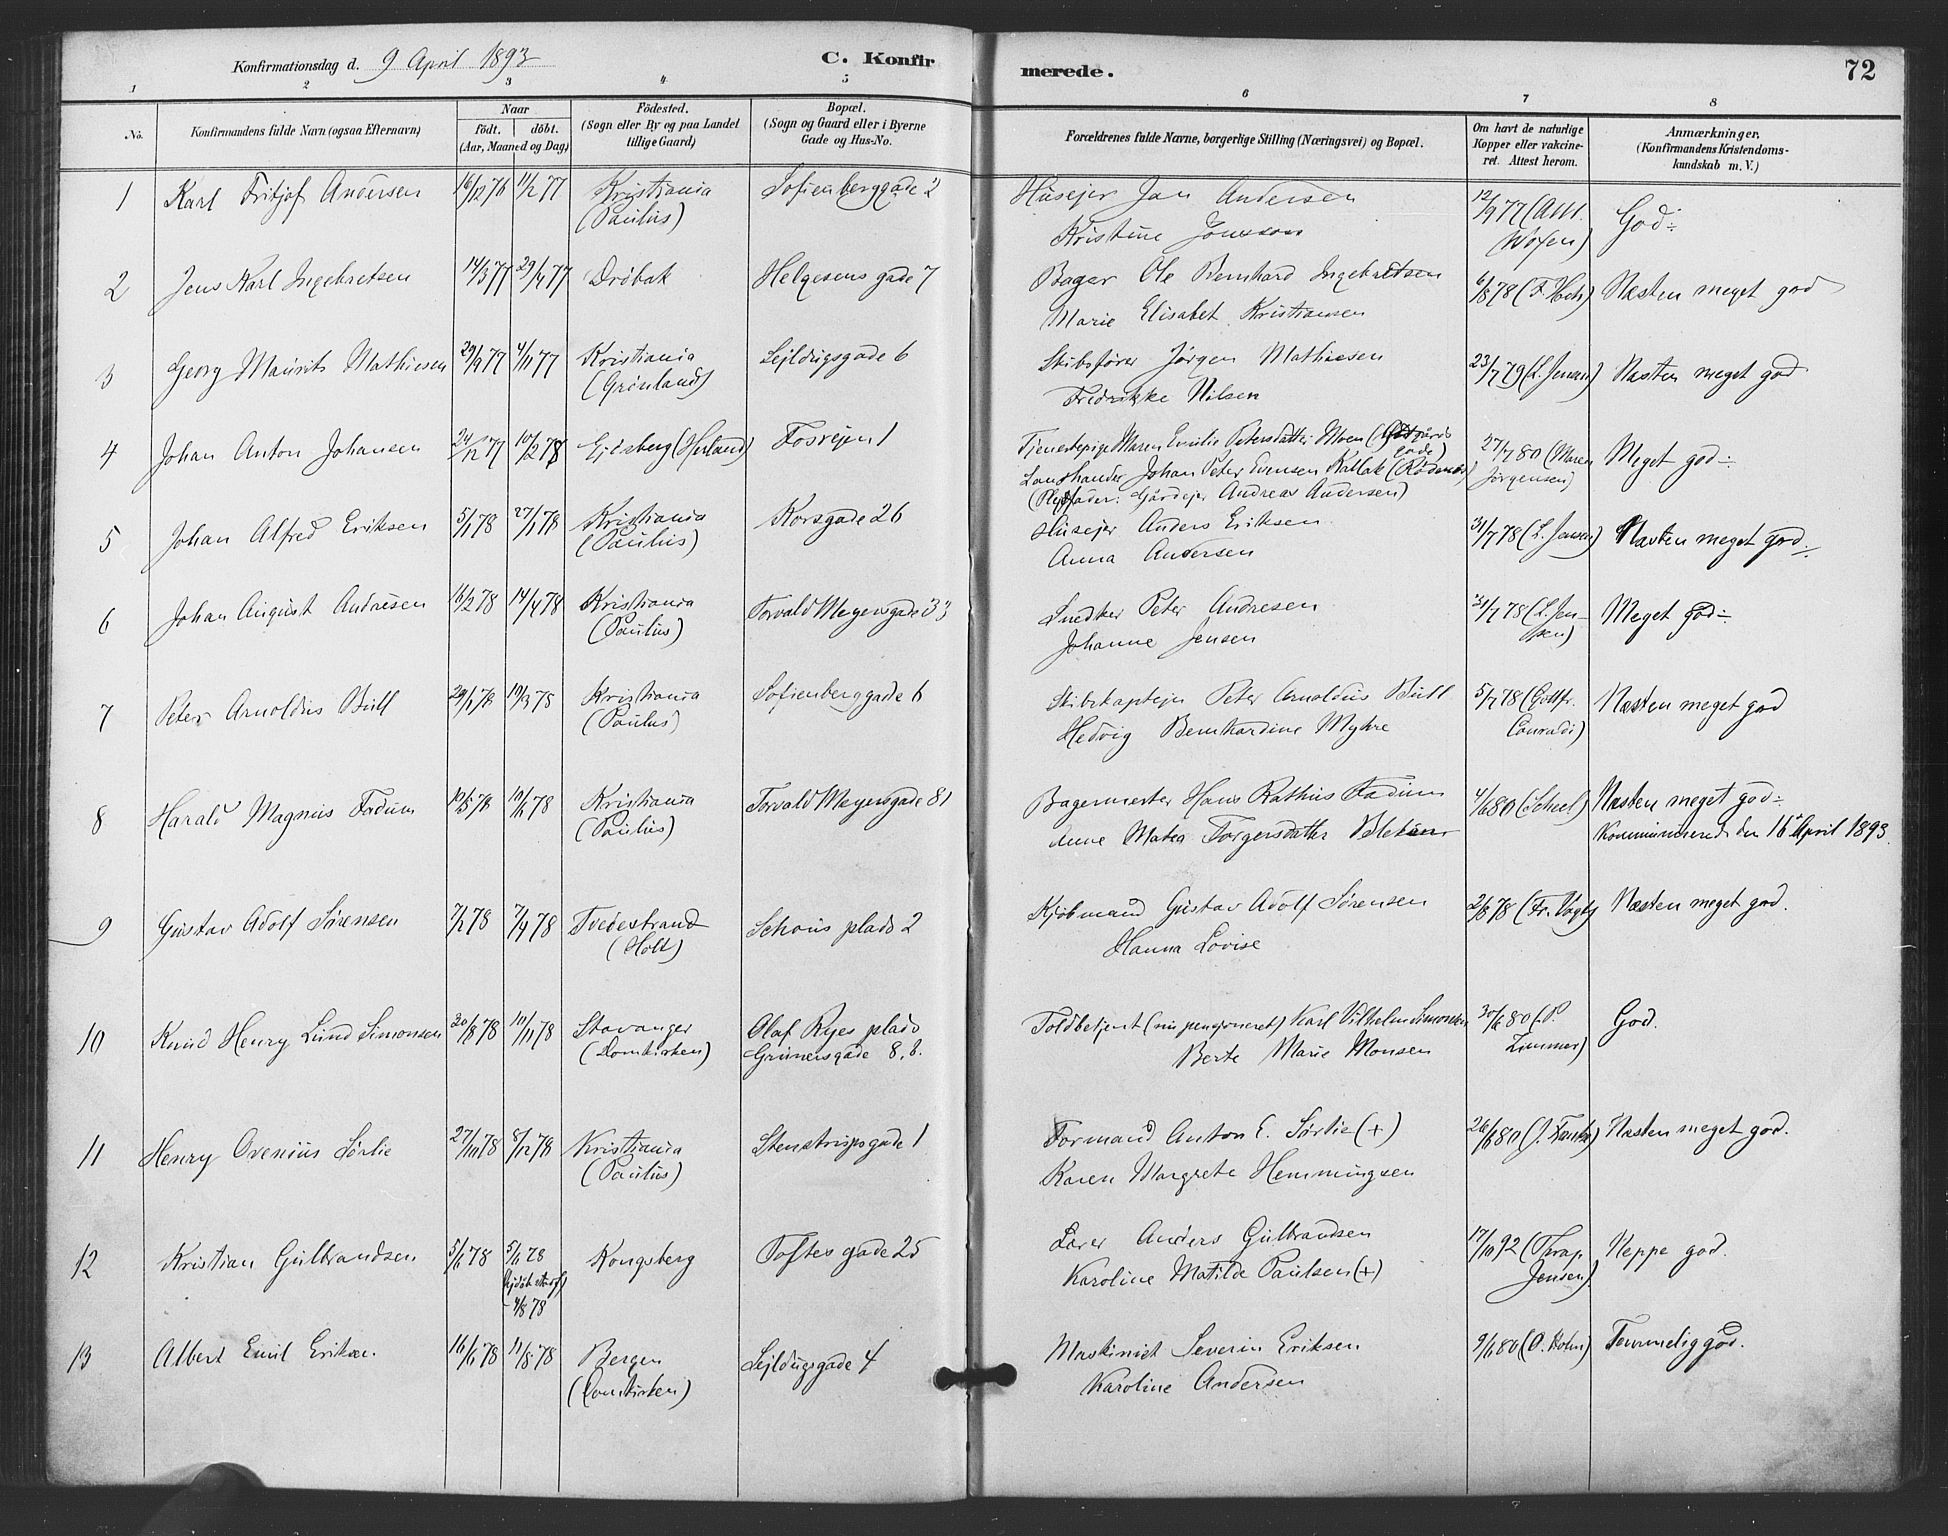 Konfirmationsdag d. 9 April 1893
C. Konfirmerede.
72
1 2 3 4 5 6 7 8
No. Konfirmandens fulde Navn (ogsaa Efternavn)
Naar födt. döbt. (Aar, Maaned og Dag)
Födested. (Sogn eller By og paa Landet tillige Gaard)
Bopæl. (Sogn og Gaard eller i Byerne Gade og Hus-No.
Forældrenes fulde Navne, borgerlige Stilling (Næringsvei) og Bopæl.
Om havt de naturlige Kopper eller vakcineret. Attest herom.
Anmærkninger. (Konfirmandens Kristendomskundskab m. V.)
1 Karl Fritjof Andersen 16/12 76 11/2 77 Kristiania (Paulus) Sofienberggade 2
Husejer Jan Andersen
Kristine 12/9 77 God
2 Jens Karl Ingebretsen 14/3 77 29/4 77 Dröbak Helgesens gade 7
Bager Ole Bernhard Ingebretsen
Marie Elisabet Kristiansen 6/8 78 Næsten meget god
3 Georg Maurits Mathiesen 29/9 77 4/11 77 Kristiania (Grönland) Sejldugsgade 6
Skibsfører Jørgen Mathiesen
Fredrikke Nilsen 23/7 79 (L. Jensen) Næsten meget god
4 Johan Anton Johansen 24/12 77 10/2 78 Ejdsberg (Herland) Fosvejen 1
Tjenestepige Maren Emilie Petersdatter Moen
Johan Peter Evensen Kallak
(Plejefader: Gårdejer Andreas Andersen) 27/7 80 (Maren Jørgensen) Meget god
5 Johan Alfred Eriksen 5/1 78 27/1 78 Kristiania (Paulus) Korsgade 26
Husejer Anders Eriksen
Anna Andersen 31/7 78 (L. Jensen) Næsten meget god
6 Johan August Andresen 16/2 78 14/4 78 Kristiania (Paulus) Torvald Meyersgade 33
Snedker Peter Andresen
Johanne Jensen 31/7 78 (L. Jensen) Meget god
7 Peter Arnoldus Bull 29/1 78 Kristiania (Paulus) Sofienberggade 6
Skibskaptejn Peter Arnoldus Bull
Hedvig Bernhardine Myhre 5/7 78 (Gottfr. Conradi) Næsten meget god
8 Harald Magnus Fodum Kristiania (Paulus) Torvald Meyersgade 81
Bagermester Hans Rathus Fadum
Anne Matea Torgersdatter 4/6 80 (Scheel) Næsten meget god
Kommuniserede den 16 April 1893
9 Gustav Adolf Sørensen 7/9 78 Tvedestrand (Holt) Schous plads 2
Kjöbmand Gustav Adolf Sørensen
Hanna Lovise 2/8 78 (Fr. Vogt) Næsten meget god.
10 Knud Henry Lund Simonsen 30/8 78 10/11 78 Stavanger (Domkirken) Olaf Ryes plads
Grünersgade 8.
Toldbetjent (nu pensioneret) Karl Vilhelm Simonsen
Berte Marie Monsen 30/6 80 God.
11 Henry Ovenius Sørlie 27/10 78 8/12 78 Kristiania (Paulus) Stenstrupsgade 1
Formand Anton E. Sørlie (+)
Karen Margrete Hemmingsen 26/6 80 Næsten meget god.
12 Kristian Gulbrandsen 5/6 78 5/6 78 4/8 78 Kongsberg Toftes gade 25
Anders Gulbrandsen
Karoline Matilde Paulsen (+) 17/10 92 (Thrap Jensen) Neppe god.
13 Albert Emil Eriksen 16/6 78 11/8 78 Bergen (Domkirken) Sejldugsgade 4
Maskinist Severin Eriksen
Karoline Andersen 9/6 80 (O. Holm) Temmelig god.